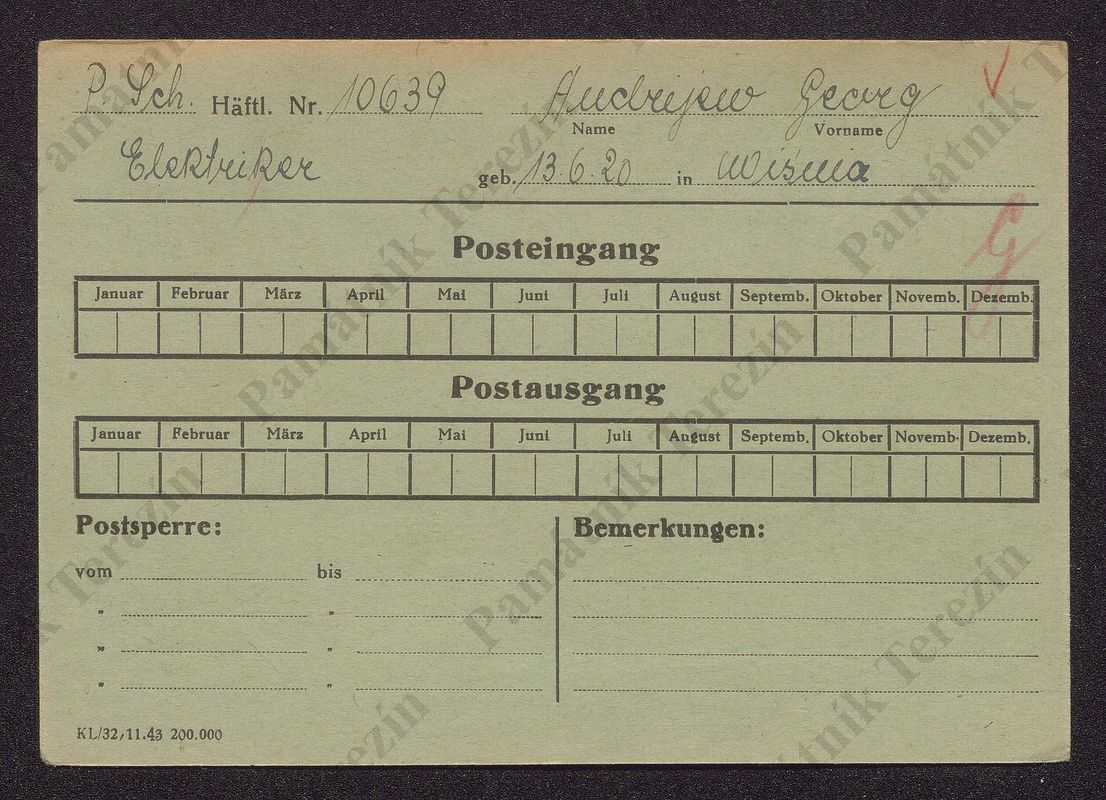 P. Sch. Häftl. Nr. 10639 Andrejew Georg
Name Vorname
Elektriker geb. 13.6.20 in
Posteingang
Januar Februar März April Mai Juni Juli August Septemb. Oktober Novemb. Dezemb.
G
Postausgang
Januar Februar März April Mai Juni Juli August Septemb. Oktober Novemb. Dezemb.
Postsperre: Bemerkungen:
vom bis
" "
" "
" "
KL/32, 11.43 200.000
Památník Terezín